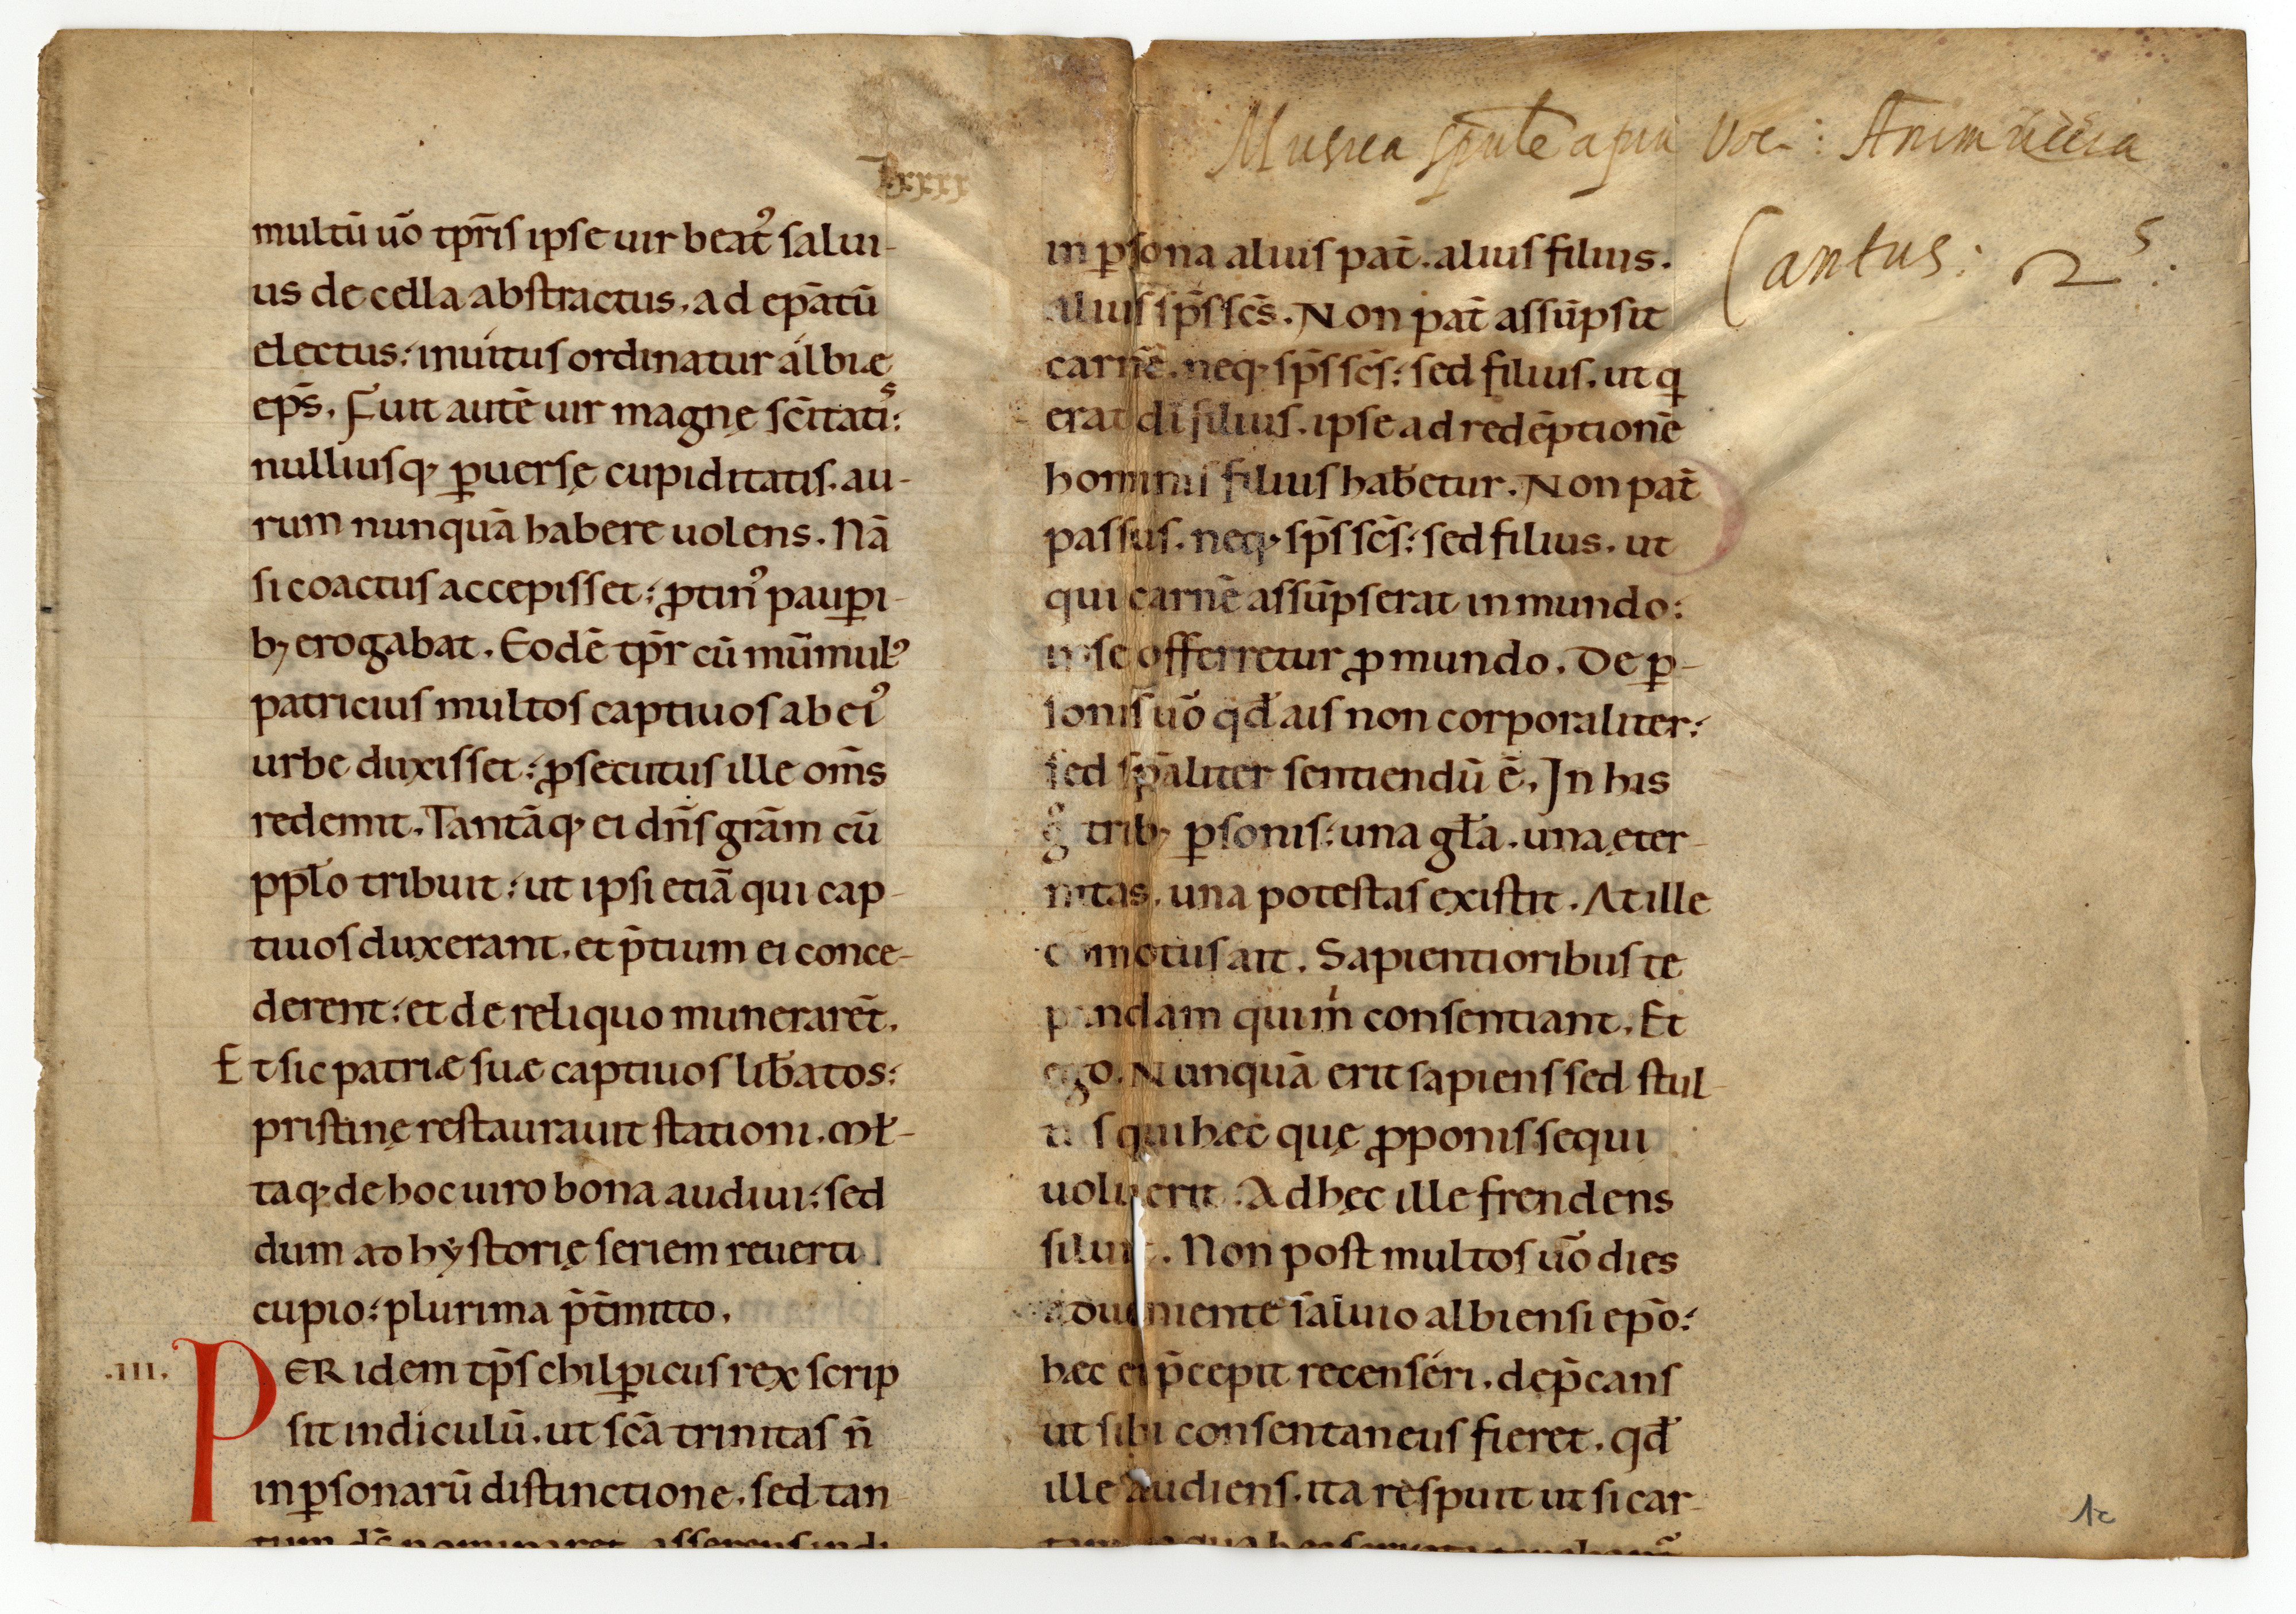 lxxxx
multū uō tp̄ris ipse uir beatꝰ salui-
us de cella abstractus. ad ep̄atū
electus: inuitus ordinatur albiæ
ep̄s. Fuit autē uir magnę sc̄itatiˢ:
nulliusq; ꝑuersę cupiditatis. au-
rum nunquā habere uolens. Nā
si coactus accepisset: ꝓtinꝰ pauꝑi-
b; erogabat. Eodē tp̄r cū mūmulꝰ
patricius multos captiuos ab eiꝰ
urbe duxisset: ꝓsecutus ille om̄s
redemit. Tantāq; ei dn̄s grām cū
pplo̅ tribuit: ut ipsi etiā qui cap-
tiuos duxerant. et p̄tium ei conce-
derent: et de reliquo munerarēt.
Et sic patriæ suæ captiuos lib̄atos:
pristinę restaurauit stationi. Ml̄-
taq; de hoc uiro bona audiui: sed
dum ad hẏstorię seriem reuerti
cupio: plurima p̄t̄mitto.
.III. PER idem tp̄s chilꝑicus rex scrip
sit indiculū. ut sc̄a trinitas n̄
in ꝑsonarū distinctione. sed tan
tum dc̄ nominaret. asserens indi
Musica
Cantus: 2ˢ:
in ꝑsona alius pat̄. alius filius.
alius sp̄s sc̄s. Non pat̄ assūpsit
carnē. neq; sp̄s sc̄s: sed filius. ut q
erat di̅ filius. ipse ad redēptionē
hominis filius hab̄etur. Non pat̄
passus. neq; sp̄s sc̄s: sed filius. ut
qui carnē assūpserat in mundo:
ipse offerretur ꝓ mundo. De ꝑ-
sonis uō qd̄ ais non corporaliter:
sed sp̄aliter sentiendū ē. In his
gͦ trib; ꝑsonis: una gl̄a. una eter-
nitas. una potestas existit. At ille
cōmotus ait. Sapientioribus te
pandam qui m̍ consentiant. Et
ego. Nunquā erit sapiens sed stul-
tus qui hæc quę ꝓponis sequi
uoluerit. Ad hęc ille frendens
siluit. Non post multos uō dies
adueniente saluio albiensi ep̄o:
hæc ei p̄cepit recenséri. dep̄cans
ut sibi consentaneus fieret. qd̄
ille audiens. ita respuit ut si car-
1c